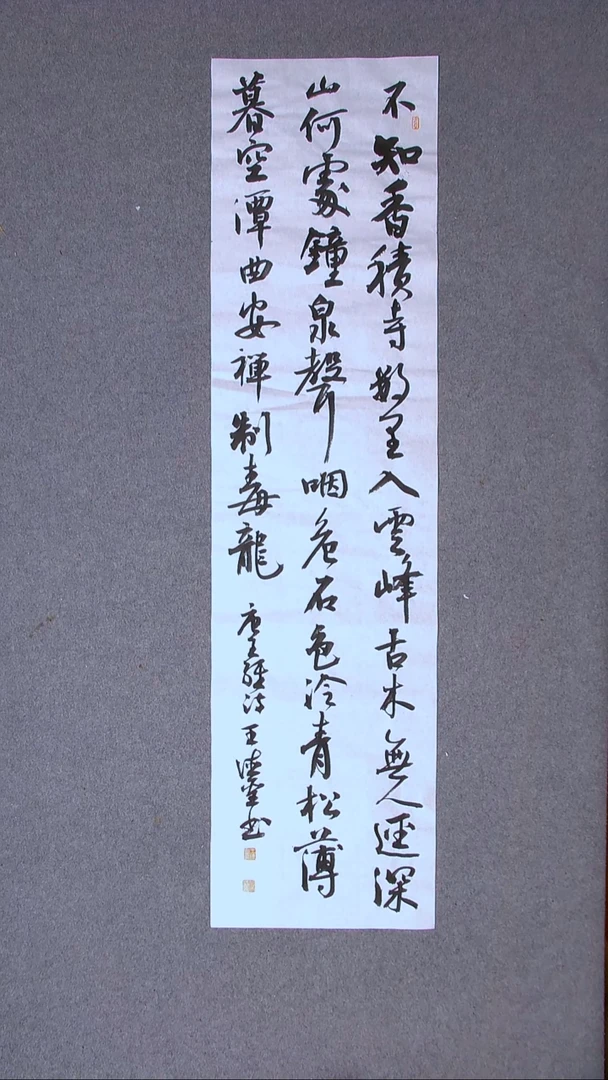 不知香積寺數里入雲峰古木無人逕深
山何處鐘泉聲咽危石色冷青松薄
暮空潭曲安禪制毒龍
唐王維詩王書